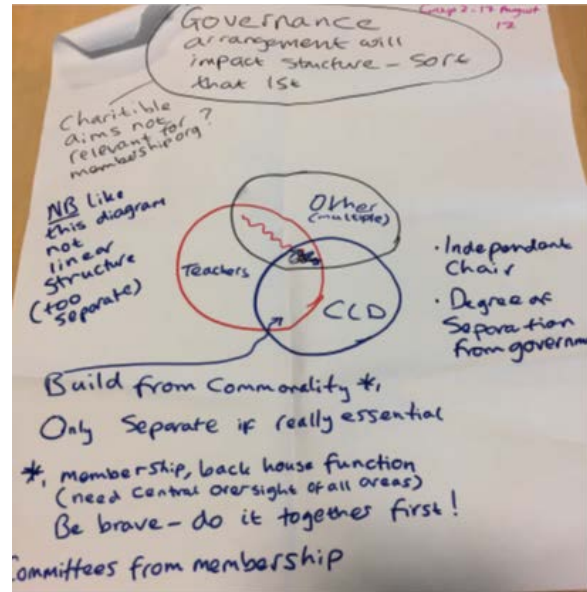 Governance
arrangement will
impact structure - sort
that 1st
17 August
12
Charitible
aims not
relevant for ?
membership org?
NB like
this diagram
not
linear
structure
(too
separate)
Other
(multiple)
Teachers
CLD
· Independant
Chair
· Degree of
Separation
from governm
Build from Commonality *,
Only Separate if really essential
*, membership, back house function
(need central oversight of all areas)
Be brave - do it together first!
ommittees from membership